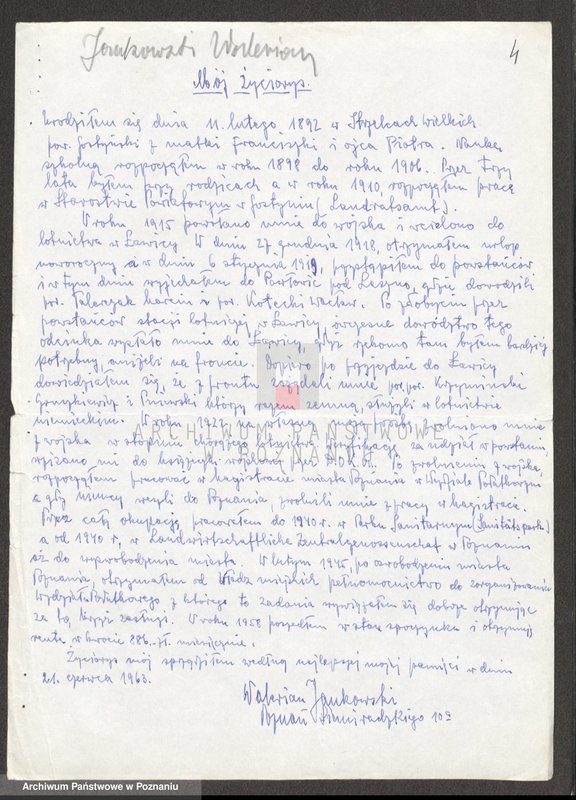 Jankowski Walerian
4
Mój Życiorys.
Urodziłem się dnia 11. lutego 1892 w Strzelcach Wielkich
pow. Gostyński z matki Franciszki i ojca Piotra. Naukę
szkolną rozpocząłem w roku 1898 do roku 1906. Przez trzy
lata byłem przy rodzicach a w roku 1910, rozpocząłem pracę
w Starostwie Powiatowym w Gostyniu (Landratsamt).
W roku 1915 powołano mnie do wojska i wcielono do
lotnictwa w Ławicy. W dniu 27 grudnia 1918, otrzymałem urlop
noworoczny a w dniu 6 stycznia 1919, przystąpiłem do powstańców
i w tym dniu wyjechałem do Pawłowic pod Leszno, gdzie dowodzili
por. Talarczak Marcin i por. Kotecki Wacław. Po zdobyciu przez
powstańców stacji lotniczej w Ławicy, wczesne dowództwo tego
odcinka wysłało mnie do Ławicy, gdyż rzekomo tam byłem bardziej
potrzebny, aniżeli na froncie. Dopiero po przyjeździe do Ławicy
dowiedziałem się, że z frontu zażądali mnie por. por. Krzymiński
i Pniewski którzy razem ze mną, służyli w lotnictwie
niemieckim. W roku 1921 na własną prośbę, zwolniono mnie
z wojska w stopniu
wpisano mi do książeczki wojskowej przez P.K.U. Po zwolnieniu z wojska,
rozpocząłem pracować w Magistracie miasta Poznania w Wydziale Podatkowym
a gdy Niemcy weszli do Poznania, zwolnili mnie z pracy w Magistracie.
Przez całą okupację, pracowałem do 1940 r. w Parku Sanitarnym (Sanitätspark)
a od 1940 r, w Landwirtschaftliche Zentralgenossenschaft w Poznaniu
aż do wyzwobodzenia miasta. W lutym 1945, po oswobodzeniu miasta
Poznania, otrzymałem od Władz miejskich pełnomocnictwo do zorganizowania
Wydziału Podatkowego z którego to zadania wywiązałem się dobrze otrzymując
za to, Krzyż zasługi. W roku 1958 poszedłem w stan spoczynku i otrzymuję
rentę w kwocie 886.- zł. miesięcznie.
Życiorys mój sporządziłem według najlepszej mojej pamięci w dniu
21. czerwca 1963.
Walerian Jankowski
Poznań Siemiradzkiego 10a
ARCHIWUM PAŃSTWOWE
W POZNANIU
Archiwum Państwowe w Poznaniu